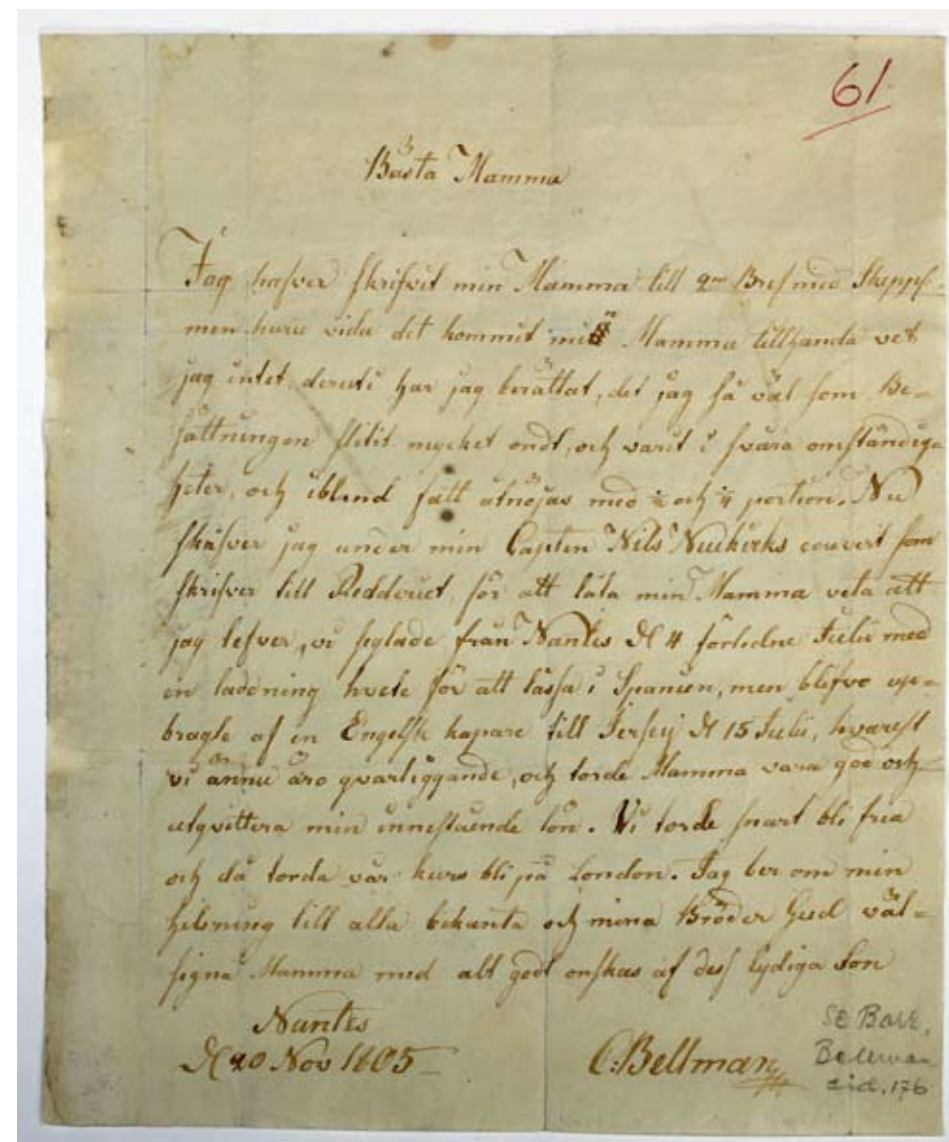 61
Bästa Mamma
Jag hafver skrifvit min Mamma till 2ne Bref med Skepp
men huru vida det kommit min Mamma tillhanda vet
jag intet, deruti har jag berättat, det jag så väl som Be-
sättningen slitit mycket ondt, och varit i svåra omständiga
heter, och ibland fått åtnöjas med ½ och ¼ portion. Nu
skrifver jag under min Capten Nils Neukirks couvert som
skrifver till Redderiet, för att låta min Mamma veta att
jag lefver, vi seglade från Nantes d 4 förledne Julii med
en laddning hvete för att låssa i Spanien, men blefvo up-
bragte af en Engelsk kapare till Jersey d 15 Julii, hvarest
vi ännu äro qvarliggande, och torde Mamma vara god och
utqvittera min innestående lön. Vi torde snart bli fria
och då torde vår kurs bli på London. Jag ber om min
helsning till alla bekanta och mina Bröder Gud väl-
signa Mamma med alt godt önskas af dess Lydiga Son
Nantes
d 20 Nov 1805
C. Bellman
SE Bark.
Bellman
sid. 176